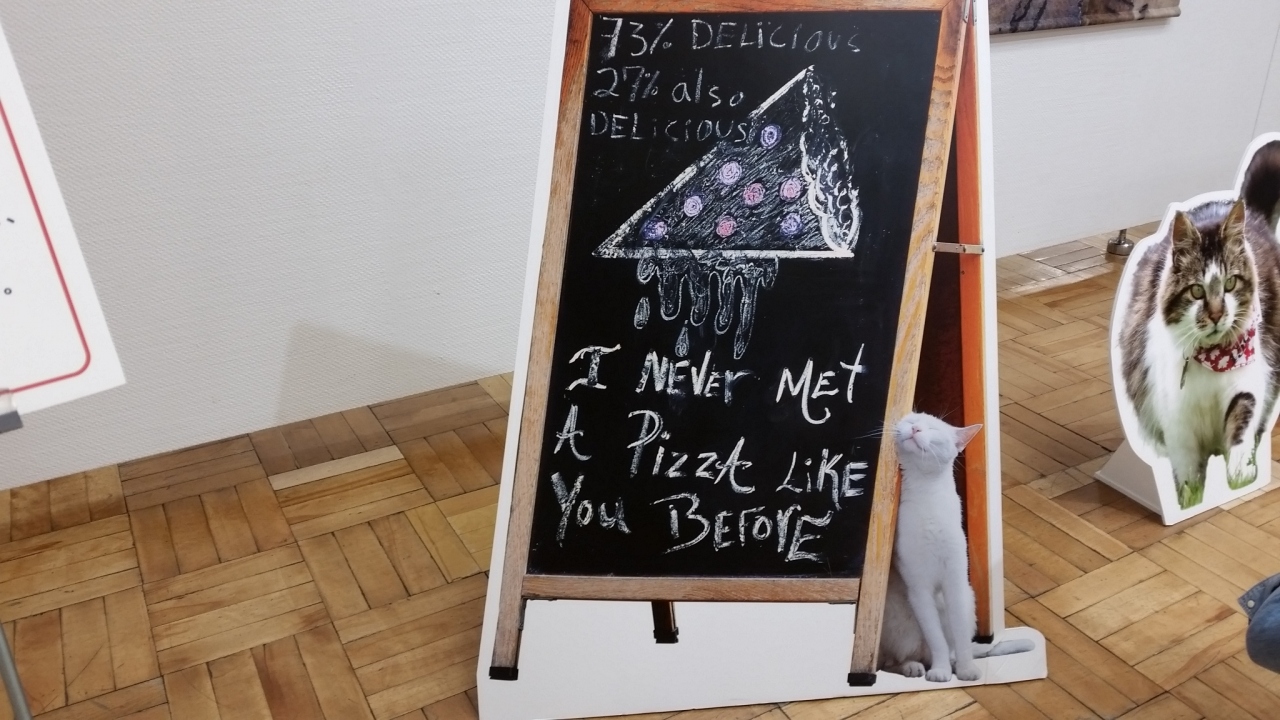 73% DELiCiOUS
27% also
DELiCiOUS
I NEVEr MEt
A PizzA LiKE
You BEFOrE